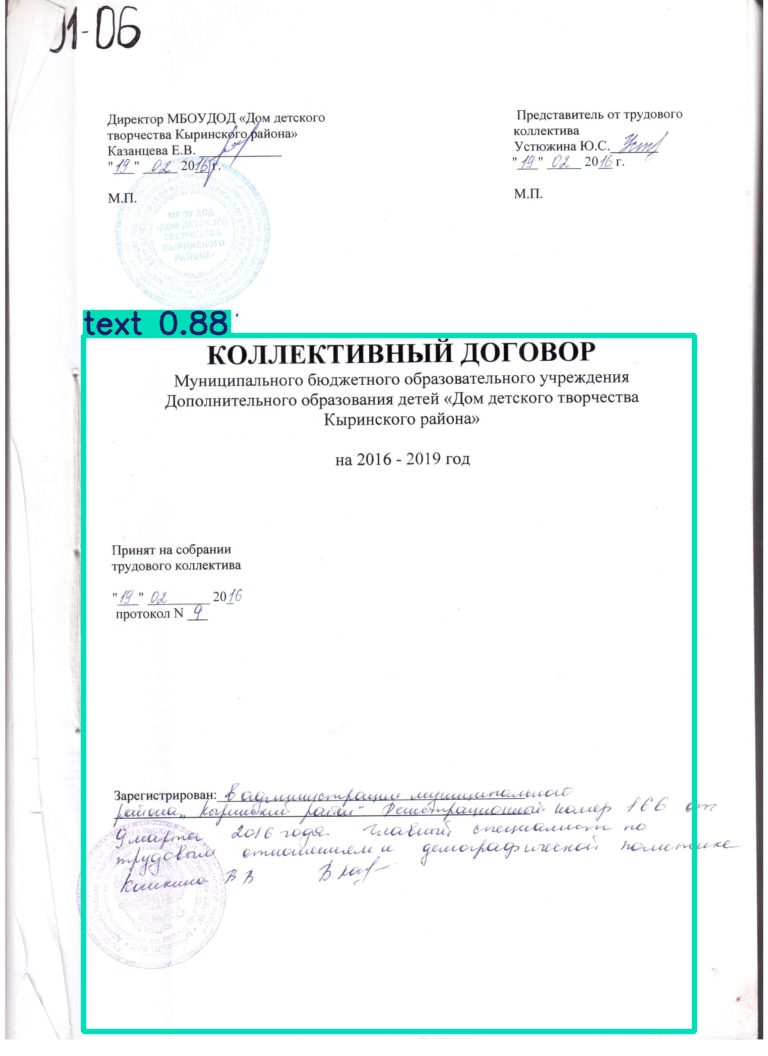 И-06
Директор МБОУДОД «Дом детского
творчества Кыринского района»
Казанцева Е.В.
"19" 02 2016 г.
М.П.
Представитель от трудового
коллектива
Устюжина Ю.С.
"19" 02 2016 г.
М.П.
МБОУ ДОД
«ДОМ ДЕТСКОГО
ТВОРЧЕСТВА
КЫРИНСКОГО
РАЙОНА»
text 0.88
КОЛЛЕКТИВНЫЙ ДОГОВОР
Муниципального бюджетного образовательного учреждения
Дополнительного образования детей «Дом детского творчества
Кыринского района»
на 2016 - 2019 год
Принят на собрании
трудового коллектива
"19" 02 2016
протокол N 9
Зарегистрирован: в администрации муниципального
района „Кыринский район" Регистрационный номер 166 от
9 марта 2016 года. главный специалист по
трудовым отношениям и демографической политике
В В